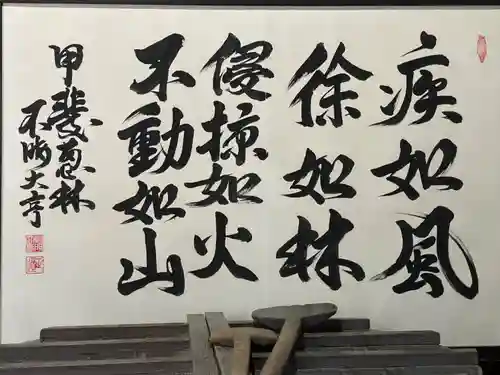 疾如風
徐如林
侵掠如火
不動如山
甲斐恵林
不時大亨